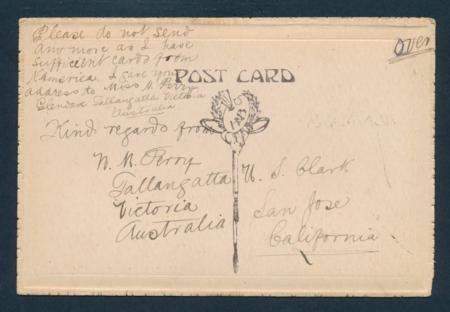 Please do not send
any more as I have
sufficient cards from
N America. I gave your
address to Miss H. Perry
Tallangatta Victoria
Australia
over
POST CARD
Kind regards from
N. B. Perry
Tallangatta
Victoria
Australia
H. S. Clark
San Jose
California